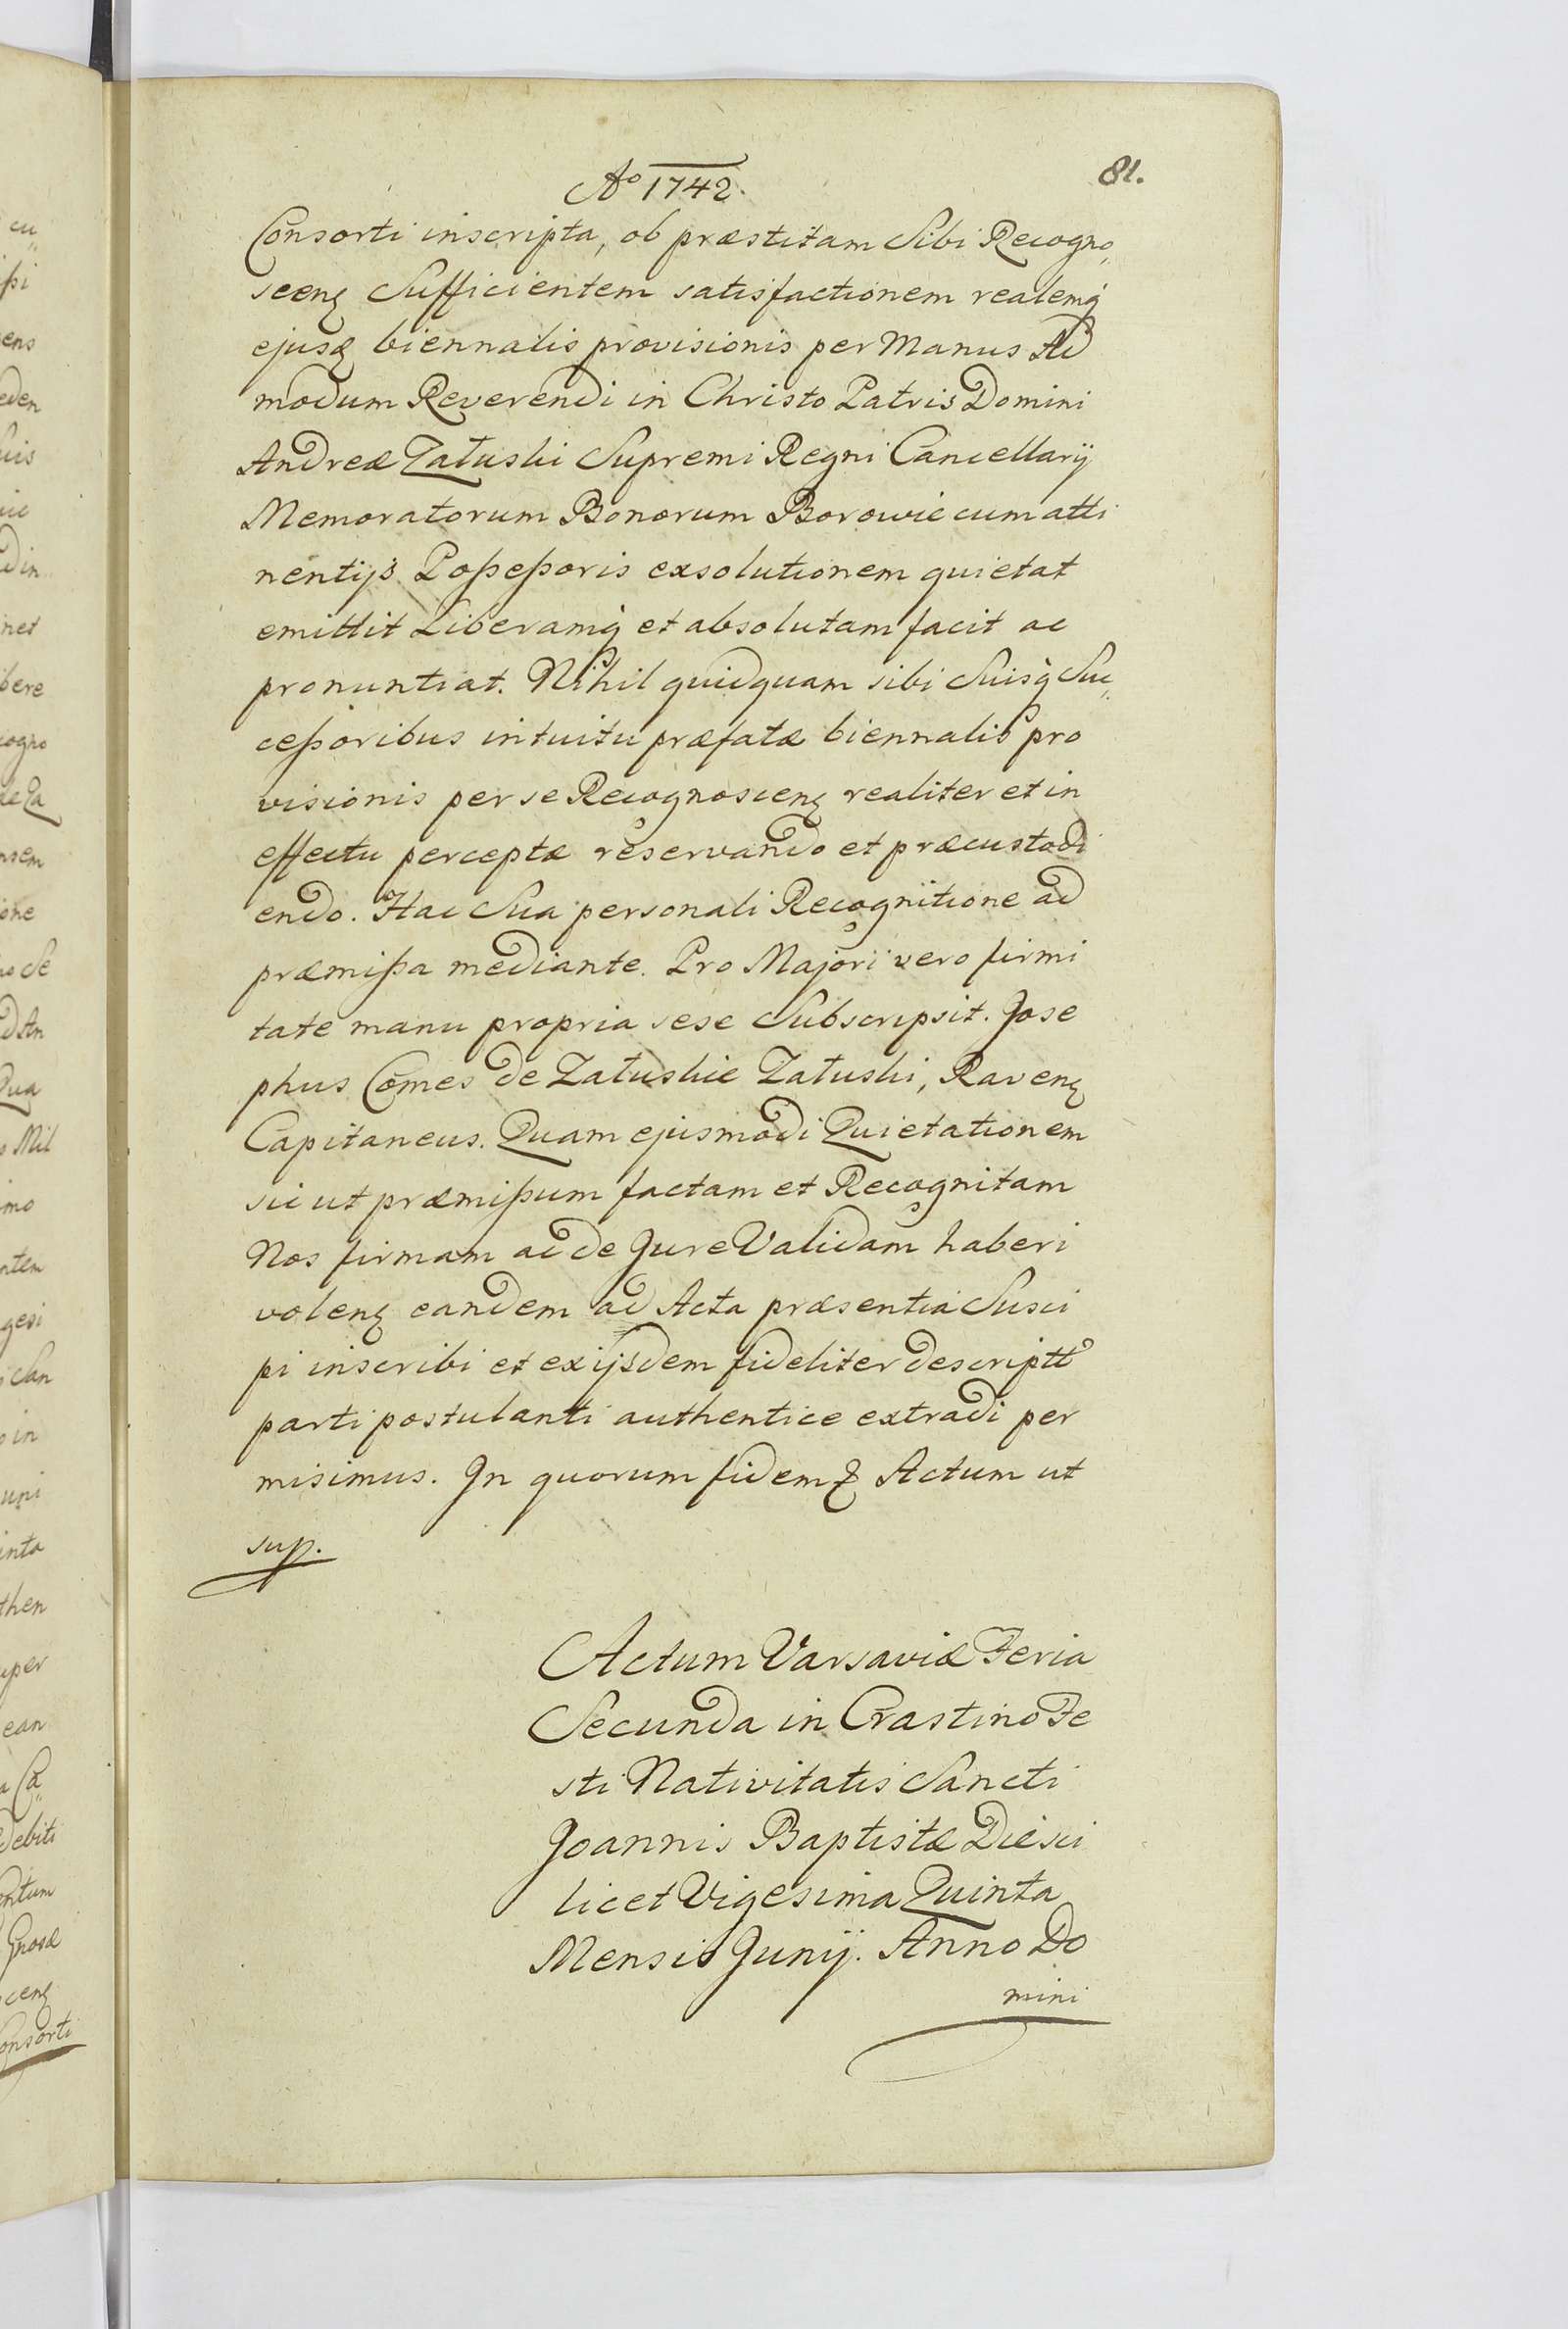 Ao 1742.
81.
Consorti inscripta, ob præstitam Sibi Recogno„
scenꝫ Sufficientem satisfactionem realemq̃
ejusꝫ biennalis provisionis per Manus Ad
modum Reverendi in Christo Patris Domini
Andreæ Załuski Supremi Regni Cancellarij
Memoratorum Bonorum Borowie cum atti
nentijs Poßeßoris exsolutionem quietat
emittit Liberamq̃ et absolutam facit ac
pronuntiat. Nihil quidquam sibi Suisq̃ Suc„
ceßoribus intuitu præfatæ biennalis pro
visionis per se Recognoscenꝫ realiter et in
effectu perceptæ reservando et præcustodi
endo. Hac Sua personali Recognitione ad
præmißa mediante. Pro Majori vero firmi
tate manu propria sese Subscripsit. Jose
phus Comes de Załuskie Załuski, Ravenꝫ
Capitaneus. Quam ejusmodi Quietationem
sic ut præmißum factam et Recognitam
Nos firmam ac de Jure Validam haberi
volenꝫ eandem ad Acta præsentia Susci
pi inscribi et ex ijsdem fideliter descriptt
parti postulanti authentice extradi per
misimus. In quorum fidemꝫ Actum ut
sup.
Actum Varsaviæ Feria
Secunda in Crastino Fe
sti Nativitatis Sancti
Joannis Baptistæ Die sci
licet Vigesima Quinta
Mensis Junij. Anno Do
mini